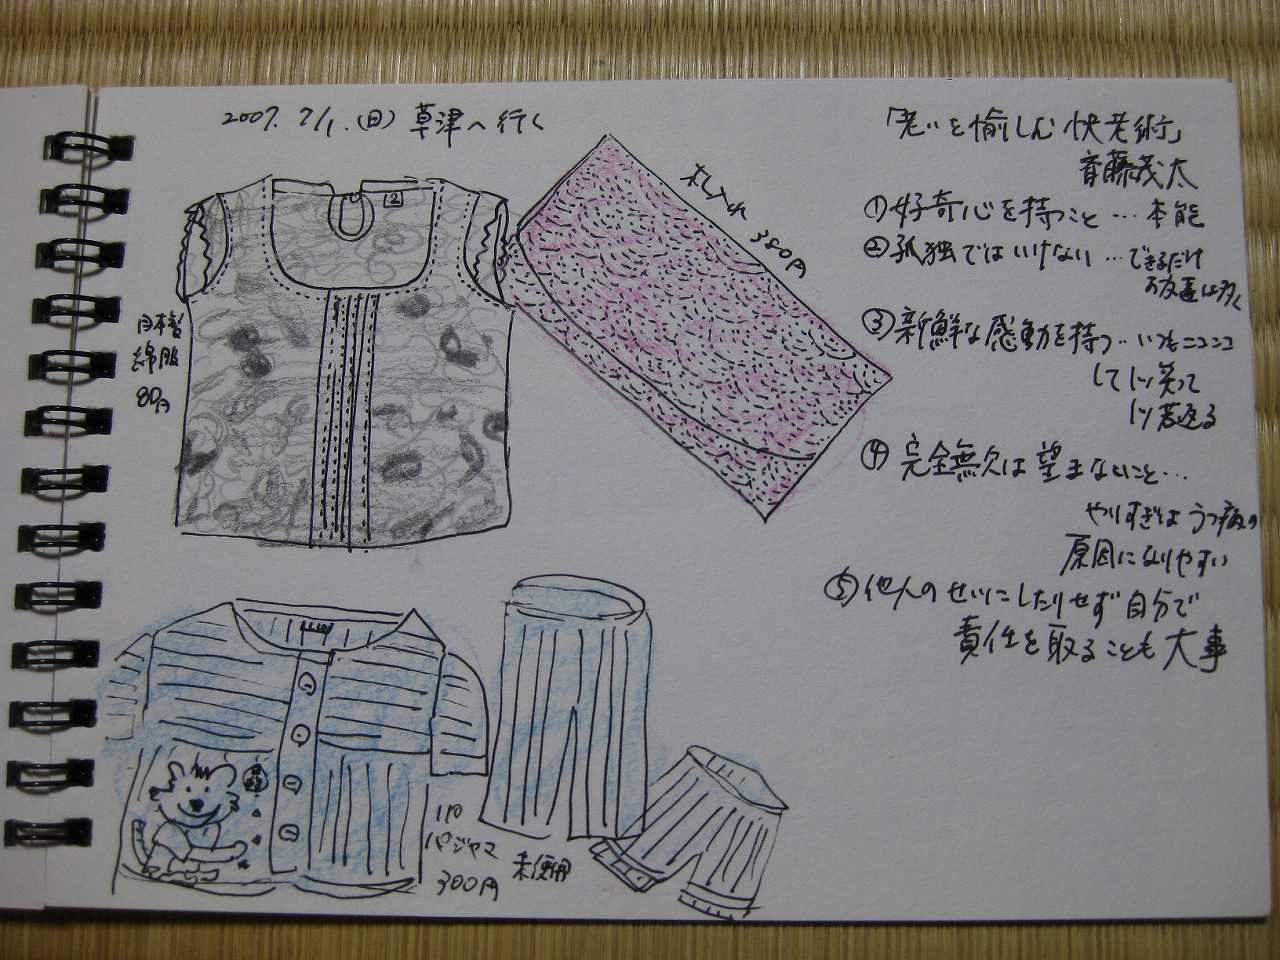 2007. 7/1. (日) 草津へ行く
2
日本製
綿服
80円
札入れ
380円
110
パジャマ
300円
未使用
「老いを愉しむ快老術」
斎藤茂太
①好奇心を持つこと…本能
②孤独ではいけない…できるだけ
お友達は多く
③新鮮な感動を持つ…いつもニコニコ
して1ツ笑って
1ツ若返る
④完全無欠は望まないこと…
やりすぎはうつ病の
原因になりやすい
⑤他人のせいにしたりせず自分で
責任を取ることも大事